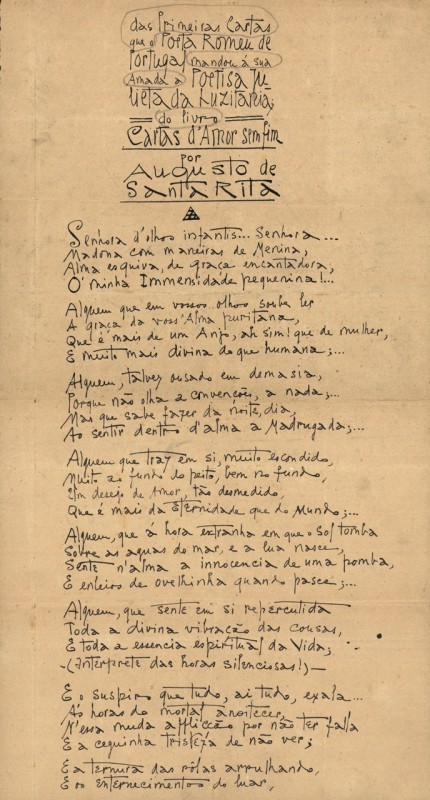 das Primeiras Cartas
que o Poeta Romeu de
Portugal mandou á sua
Amada a Poetisa Ju-
lieta da Luzitania;
do livro
Cartas d'Amor sem fim
por
Augusto de
Santa Rita
Senhora d'olhos infantis... Senhora...
Madona com maneiras de Menina,
Alma esquiva, de graça encantadora,
O' minha Immensidade pequenina!...
Alguem que em vossos olhos soube ler
A graça da voss'Alma puritana,
Que é mais de um Anjo, ah sim! que de mulher,
E muito mais divina do que humana;...
Alguem, talvez ousado em demasia,
Porque não olha a convenções, a nada;...
Mas que sabe fazer da noite, dia,
Ao sentir dentro d'alma a Madrugada;...
Alguem que traz em si, muito escondido,
Muito ao fundo do peito, bem no fundo,
Um desejo de Amor, tão desmedido,
Que é mais da Eternidade que do Mundo;...
Alguem, que á hora extranha em que o Sol tomba
Sobre as aguas do mar, e a lua nasce,
Sente n'alma a innocencia de uma pomba,
E enleios de ovelhinha quando pasce;...
Alguem, que sente em si repercutida
Toda a divina vibração das cousas,
E toda a essencia espiritual da Vida;
—(Interprete das horas silenciosas!)—
E o suspiro que tudo, ai tudo, exala...
Ás horas do mortal anoitecer,
N'essa muda afflicção por não ter falla
E a ceguinha tristeza de não ver;
E a ternura das rôlas arrulhando,
E os enternecimentos do luar,